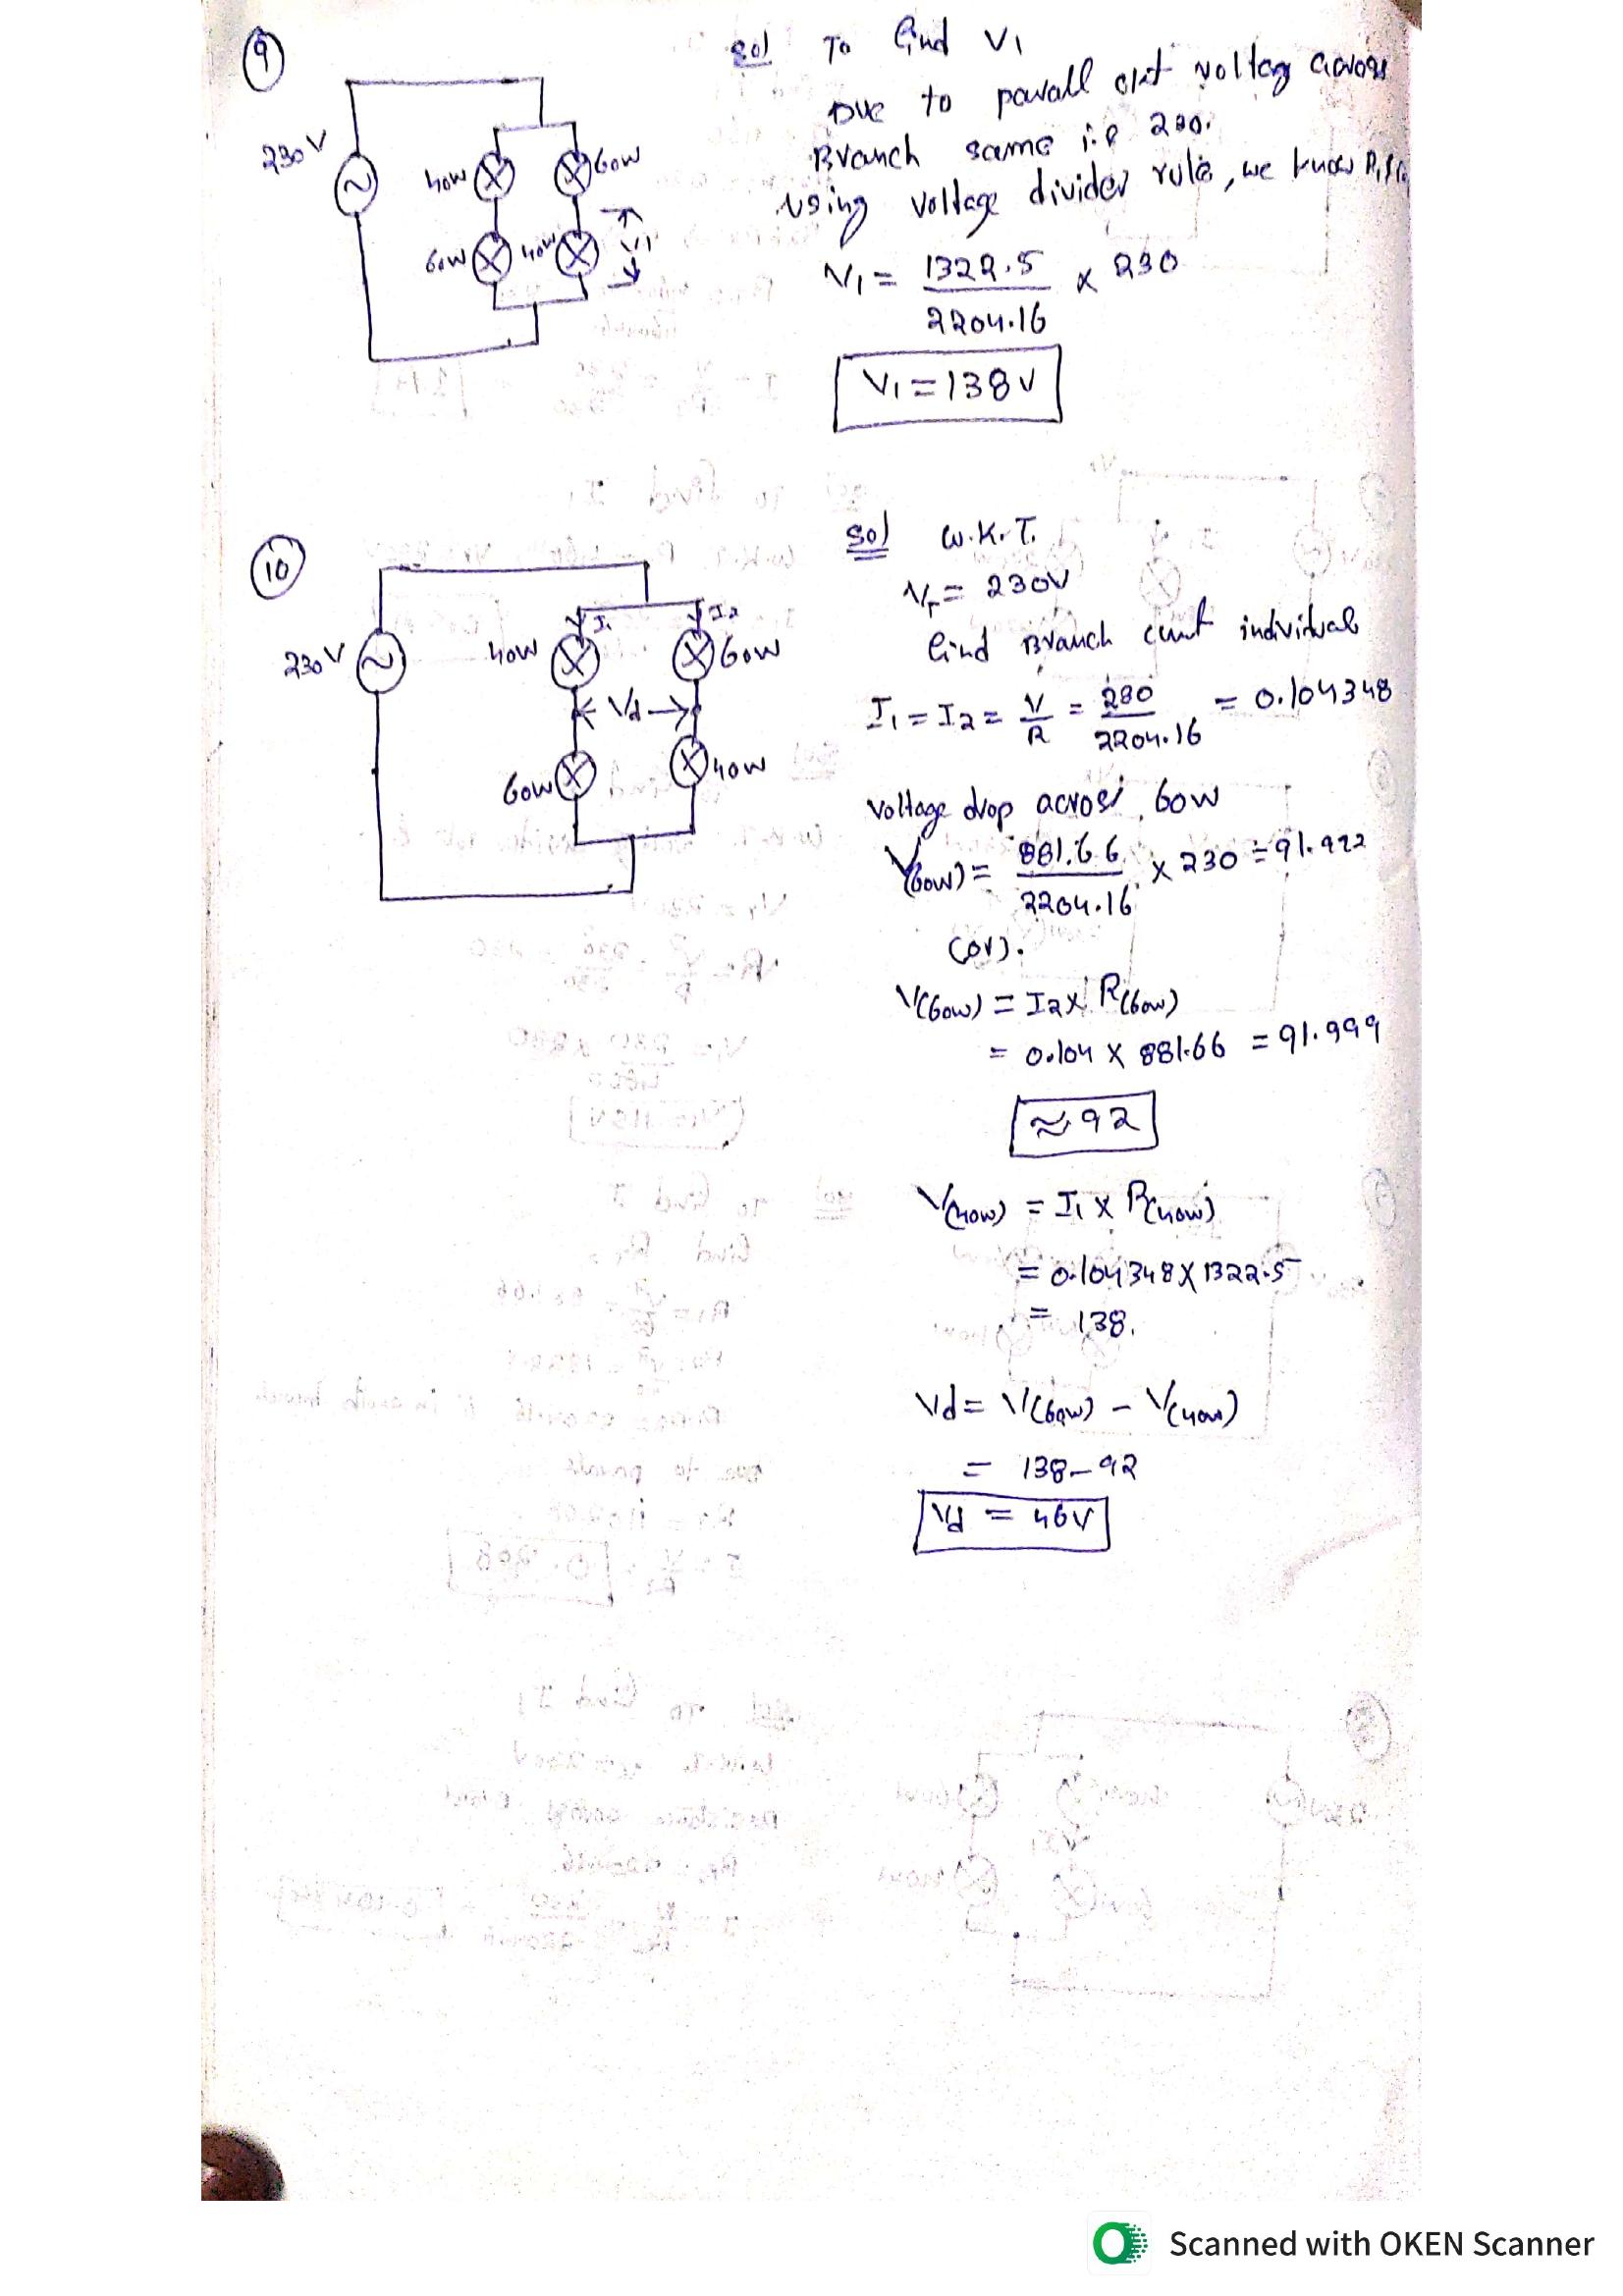 9
230V
40W
60W
60W
40W
V1
Sol To find V1
Due to parall ckt voltag across
Branch same i.e 230.
Using voltage divider rule, we know
V1 = 1322.5 / 2204.16 x 230
V1 = 138 V
10
230V
40W
I1
I2
60W
Vd
60W
40W
Sol W.K.T.
VT = 230V
find Branch curnt individual
I1 = I2 = V/R = 230/2204.16 = 0.104348
Voltage drop across 60W
V(60W) = 881.66 / 2204.16 x 230 = 91.922
(or).
V(60W) = I2 x R(60W)
= 0.104 x 881.66 = 91.999
≈ 92
V(40W) = I1 x R(40W)
= 0.104348 x 1322.5
= 138.
Vd = V(60W) - V(40W)
= 138 - 92
Vd = 46V
Scanned with OKEN Scanner